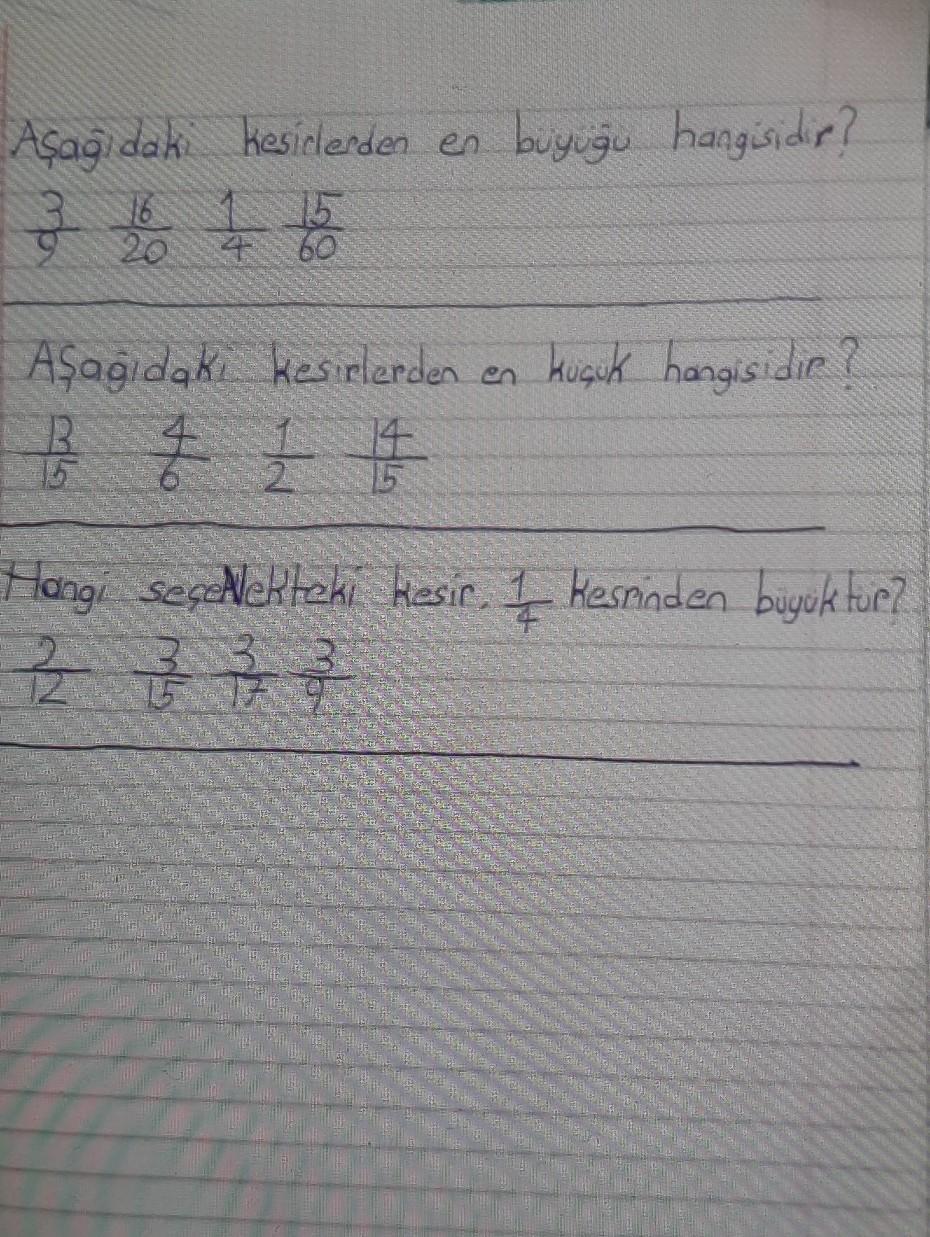 Aşağıdaki kesirlerden en büyüğü hangisidir?
3/9 16/20 1/4 15/60
Aşağıdaki kesirlerden en küçük hangisidir?
13/15 4/6 1/2 14/15
Hangi seçeNekteki kesir, 1/4 kesrinden büyüktür?
2/12 3/15 3/17 3/9